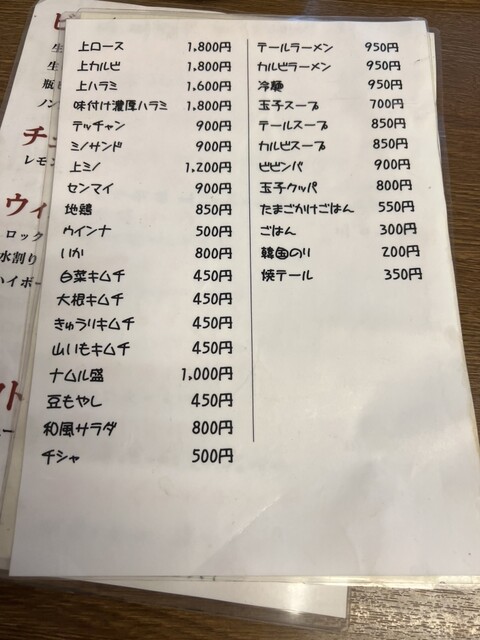 上ロース 1,800円
上カルビ 1,800円
上ハラミ 1,600円
味付け濃厚ハラミ 1,800円
テッチャン 900円
ミノサンド 900円
上ミノ 1,200円
センマイ 900円
地鶏 850円
ウインナ 500円
いか 800円
白菜キムチ 450円
大根キムチ 450円
きゅうりキムチ 450円
山いもキムチ 450円
ナムル盛 1,000円
豆もやし 450円
和風サラダ 800円
チシャ 500円
テールラーメン 950円
カルビラーメン 950円
冷麺 950円
玉子スープ 700円
テールスープ 850円
カルビスープ 850円
ビビンバ 900円
玉子クッパ 800円
たまごかけごはん 550円
ごはん 300円
韓国のり 200円
焼テール 350円
ビ
生
生
瓶
ノン
チュ
レモン
ウィ
ロック
水割り
ハイボー